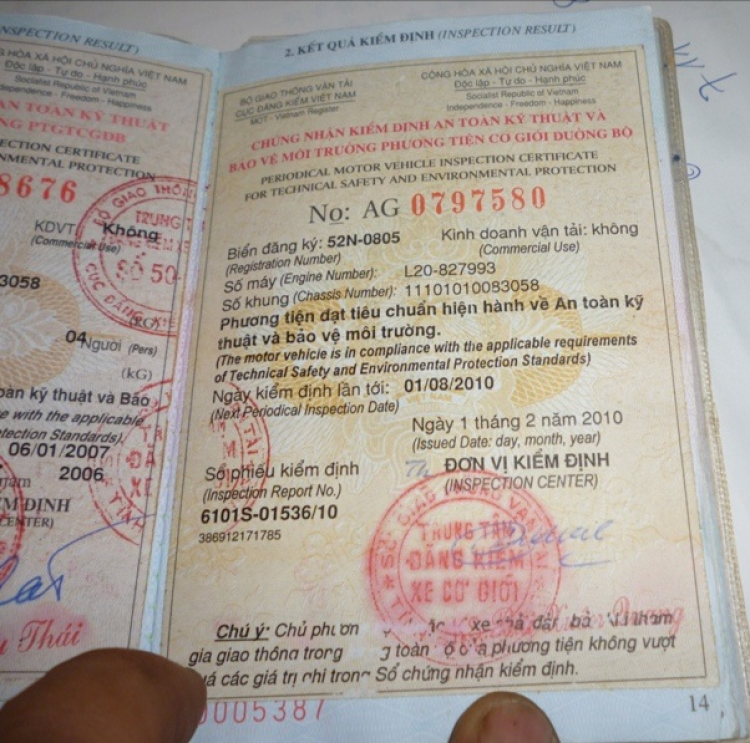 NSPECTION RESULT)
HÒA XÃ HỘI CHỦ NGHĨA VIỆT NAM
Độc lập - Tự do - Hạnh phúc
Socialist Republic of Vietnam
ependence - Freedom - Happiness
AN TOÀN KỸ THUẬT
NG PTGTCGĐB
ECTION CERTIFICATE
NMENTAL PROTECTION
8676
KDVT: Không
(Commercial use)
3058
(KG)
04 Người (Pers)
(kG)
oàn kỹ thuật và Bảo
e with the applicable
tection Standards).
06/01/2007
2006
M ĐỊNH
CENTER)
Thái
2. KẾT QUẢ KIỂM ĐỊNH (INSPECTION RESULT)
BỘ GIAO THÔNG VẬN TẢI
CỤC ĐĂNG KIỂM VIỆT NAM
MOT - Vietnam Register
CỘNG HÒA XÃ HỘI CHỦ NGHĨA VIỆT NAM
Độc lập - Tự do - Hạnh phúc
Socialist Republic of Vietnam
Independence - Freedom - Happiness
CHỨNG NHẬN KIỂM ĐỊNH AN TOÀN KỸ THUẬT VÀ
BẢO VỆ MÔI TRƯỜNG PHƯƠNG TIỆN CƠ GIỚI ĐƯỜNG BỘ
PERIODICAL MOTOR VEHICLE INSPECTION CERTIFICATE
FOR TECHNICAL SAFETY AND ENVIRONMENTAL PROTECTION
No: AG 0797580
Biển đăng ký: 52N-0805 Kinh doanh vận tải: không
(Registration Number) (Commercial Use)
Số máy (Engine Number): L20-827993
Số khung (Chassis Number): 11101010083058
Phương tiện đạt tiêu chuẩn hiện hành về An toàn kỹ
thuật và bảo vệ môi trường.
(The motor vehicle is in compliance with the applicable requirements
of Technical Safety and Environmental Protection Standards)
Ngày kiểm định lần tới: 01/08/2010
(Next Periodical Inspection Date)
Ngày 1 tháng 2 năm 2010
(Issued Date: day, month, year)
Số phiếu kiểm định
(Inspection Report No.)
6101S-01536/10
386912171785
ĐƠN VỊ KIỂM ĐỊNH
(INSPECTION CENTER)
TRUNG TÂM
ĐĂNG KIỂM
XE CƠ GIỚI
Chú ý: Chủ phươn xe bả tham
gia giao thông trong g toàn bộ phương tiện không vượt
uá các giá trị ghi trong Sổ chứng nhận kiểm định.
0005387
14